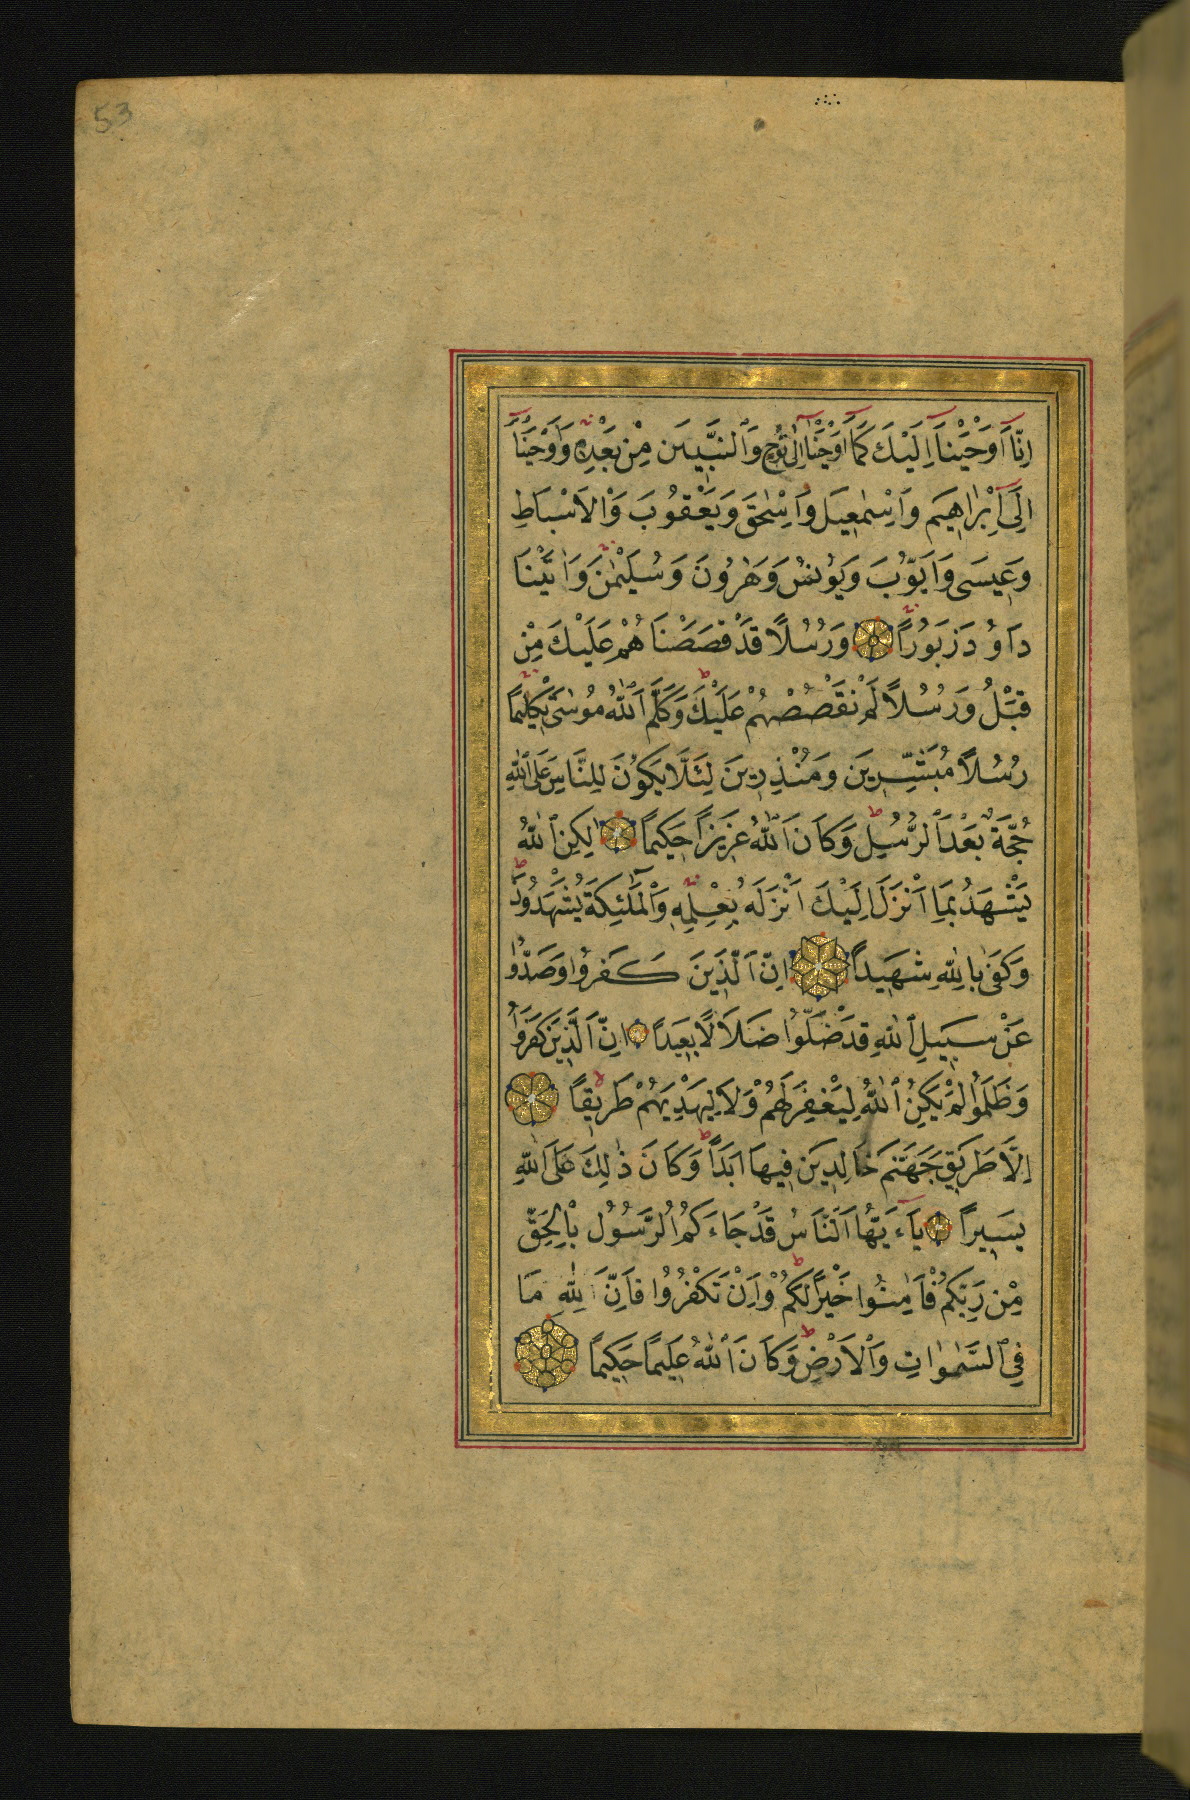 53
اِنَّآ اَوْحَيْنَآ اِلَيْكَ كَمَآ اَوْحَيْنَآ اِلٰى نُوحٍ وَالنَّبِيّينَ مِنْ بَعْدِهِ وَاَوْحَيْنَآ
اِلٰٓى اِبْرٰاهِيمَ وَاِسْمٰعِيلَ وَاِسْحٰقَ وَيَعْقُوبَ وَالْاَسْبَاطِ
وَعِيسَى وَاَيّوُبَ وَيوُنسُ وَهٰرُونَ وَسُلَيْمٰنَ وَاٰتَيْنَا
دَاوُدَ زَبوُرًا وَرُسُلًا قَدْ قصَصْنَاهُمْ عَلَيْكَ مِنْ
قَبْلُ وَرُسُلًا لَمْ نَقْصُصْهُمْ عَلَيْكَ وَكَلَّمَ اللّٰهُ مُوسٰى تَكْلِيمًا
رُسُلًا مُبَشِّرِينَ وَمُنْذِرِينَ لِئَلَّا يَكُونَ لِلنَّاسِ عَلَى اللّٰهِ
حُجَّةٌ بَعْدَ الرُّسُلِ وَكَانَ اللّٰهُ عَزِيزًا حَكِيمًا لٰكِنِ اللّٰهُ
يَشْهَدُ بِمَا اَنْزَلَ اِلَيْكَ اَنْزَلَهُ بِعِلْمِهِ وَالْمَلٰٓئِكَةُ يَشْهَدُونَ
وَكَفٰى بِاللّٰهِ شَهِيدًا اِنَّ الَّذِينَ كَفَروُا وَصَدُّوا
عَنْ سَبِيلِ اللّٰهِ قَدْ ضَلّوُا ضَلَالًا بَعِيدًا اِنَّ الَّذِينَ كَفَرُوا
وَظَلَمُوا لَمْ يَكُنِ اللّٰهُ لِيَغْفِرَ لَهُمْ وَلَا لِيَهْدِيَهُمْ طَرِيقًا
اِلَّا طَرِيقَ جَهَنَّمَ خَالِدِينَ فِيهَا اَبَدًا وَكَانَ ذٰلِكَ عَلَى اللّٰهِ
يَسِيرًا يَآءَيُّهَا النَّاسُ قَدْ جَاءَكُمُ الرَّسُوُل بِالْحَقِّ
مِنْ رَبِّكُمْ فَاٰمِنوُا خَيْرًا لَكُمْ وَاِنْ تَكْفُرُوا فَاِنَّ لِلّٰهِ مَا
فِي السَّمٰوٰاتِ وَالْاَرْضِ وَكَانَ اللّٰهُ عَلِيمًا حَكِيمًا